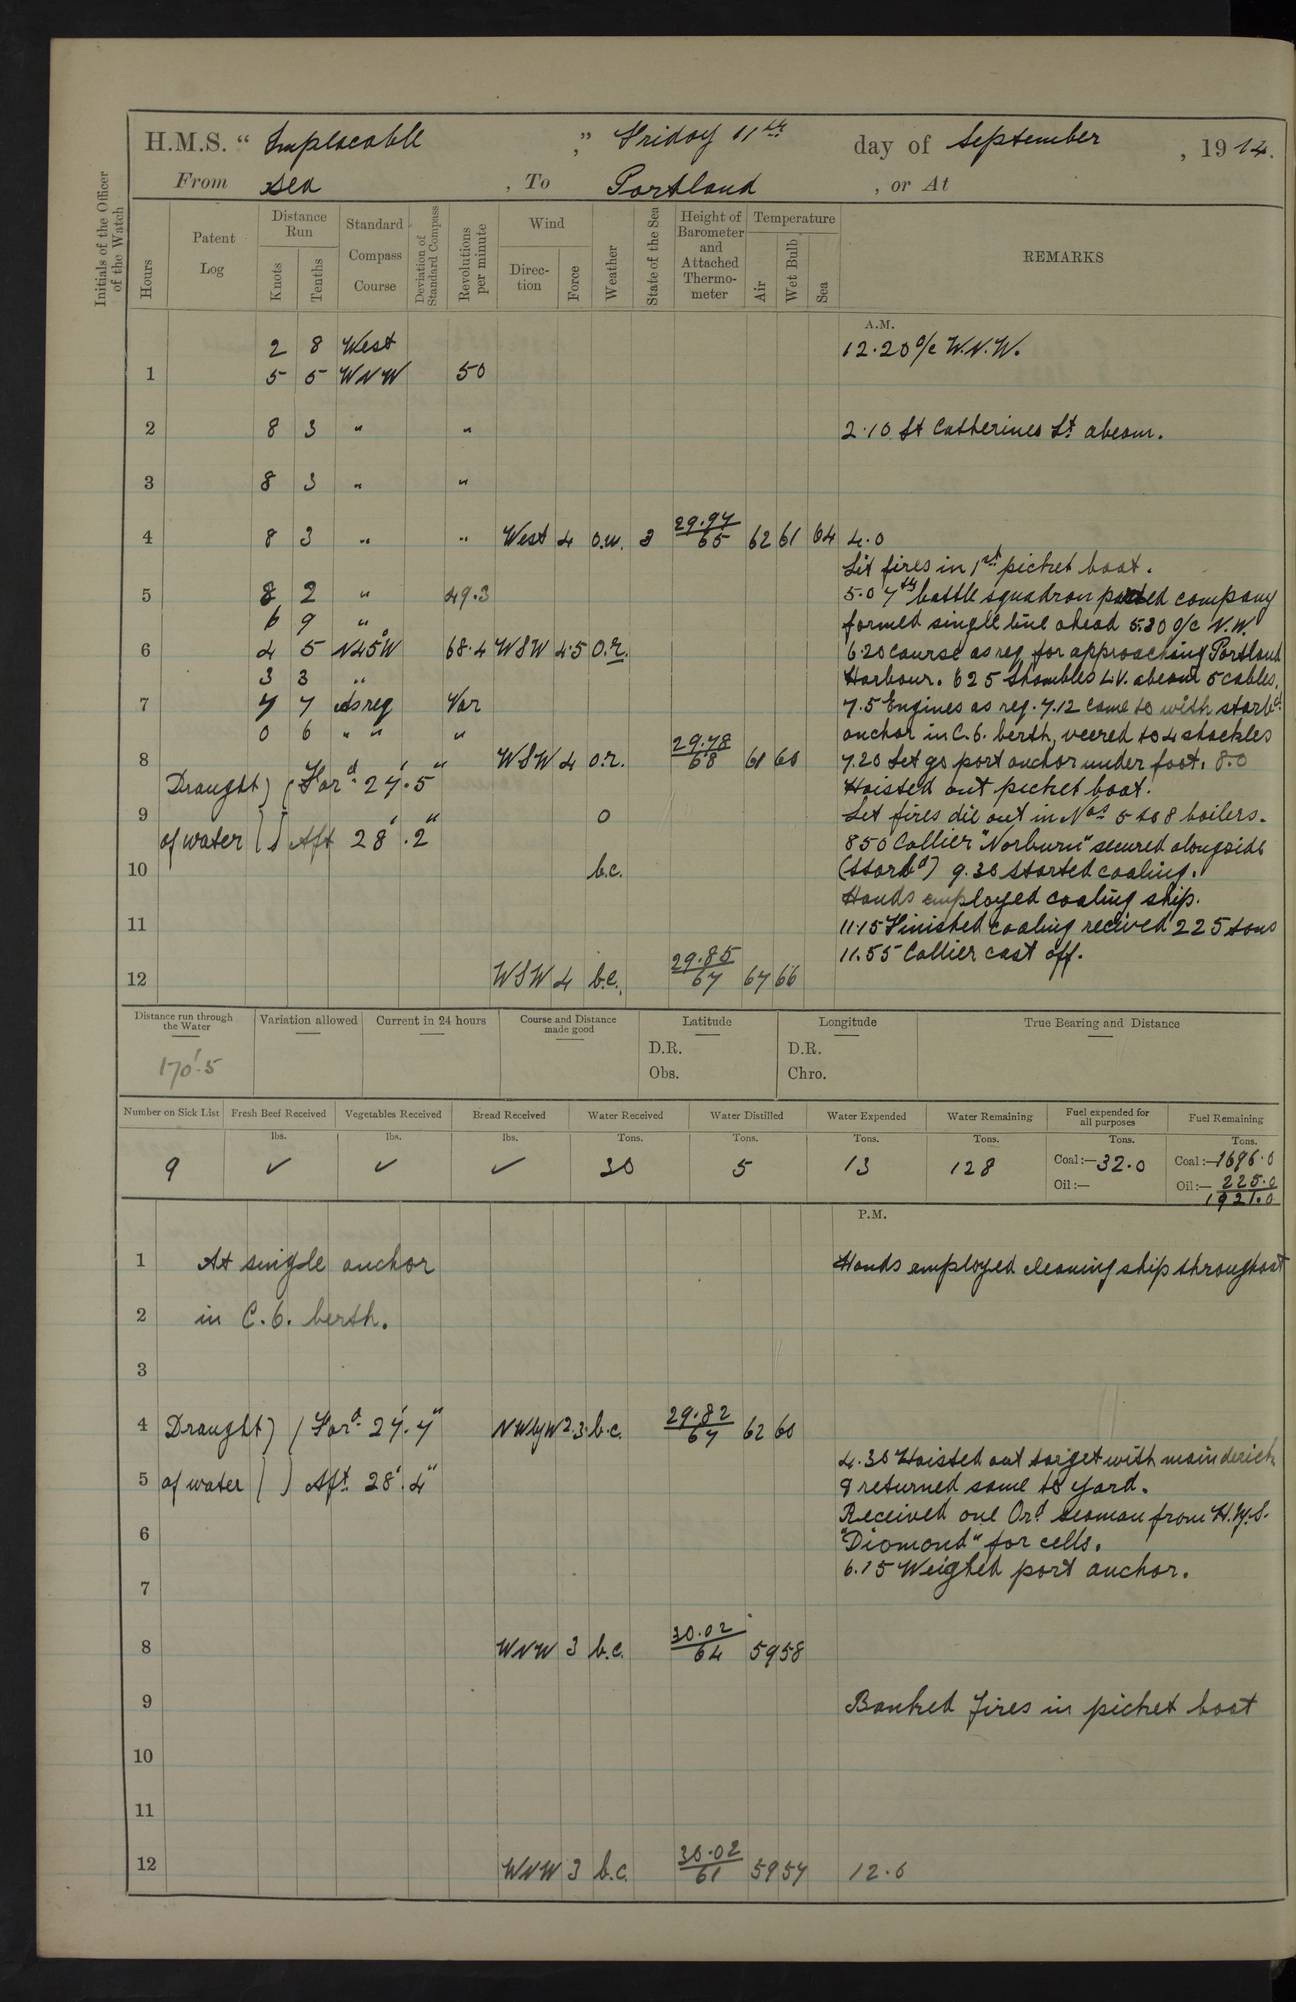 H.M.S. " Implacable " , Friday 11th day of September , 1914.
From Sea , To Portland , or At
Initials of the Officer of the Watch
Hours
Patent Log
Distance Run
Knots
Tenths
Standard Compass Course
Deviation of Standard Compass
Revolutions per minute
Wind
Direction
Force
Weather
State of the Sea
Height of Barometer and Attached Thermometer
Temperature
Air
Wet Bulb
Sea
REMARKS
A.M.
2 8 West 12.20 a/c W.N.W.
1 5 5 WNW 50
2 8 3 " " 2.10 St Catherines Lt abeam.
3 8 3 " "
4 8 3 " " West 4 o.m. 3 29.97/65 62 61 64 4.0
Lit fires in 1st picket boat.
5 8 2 " 49.3 5.0 7th battle squadron parted company
6 9 " formed single line ahead 5.30 a/c N.W.
6 4 5 N45°W 68.4 WSW 4.5 o.r. 6.20 Course as req for approaching Portland
3 3 " Harbour. 6 25 Shambles L.V. abeam 5 cables.
7 7 7 As req Var 7.5 Engines as req. 7.12 Came to with starbd
0 6 " " " anchor in C.6. berth, veered to 4 shackles
8 WSW 4 o.r. 29.78/68 61 60 7.20 Let go port anchor under foot. 8.0
Draught of water Ford 27'.5" Hoisted out picket boat.
9 o Let fires die out in Nos 5 to 8 boilers.
Aft 28'.2" 850 Collier "Norburn" secured alongside
10 b.c. (starbd) 9.30 Started coaling.
Hands employed coaling ship.
11 11.15 Finished coaling recived 225 tons
11.55 Collier cast off.
12 WSW 4 b.c. 29.85/67 67 66
Distance run through the Water
Variation allowed
Current in 24 hours
Course and Distance made good
Latitude
Longitude
True Bearing and Distance
D.R. D.R.
Obs. Chro.
170'.5
Number on Sick List Fresh Beef Received Vegetables Received Bread Received Water Received Water Distilled Water Expended Water Remaining Fuel expended for all purposes Fuel Remaining
lbs. lbs. lbs. Tons. Tons. Tons. Tons. Tons. Tons.
9 ✓ ✓ ✓ 30 5 13 128 Coal:— 32.0 Coal:— 1696.0
Oil:— Oil:— 225.0
1921.0
P.M.
1 At single anchor Hands employed cleaning ship throughout
2 in C.6. berth.
3
4 Draught of water Ford 27'.7" NWbyW 2.3 b.c. 29.82/67 62 60
4.30 Hoisted out target with main derick
5 Aft 28'.4" & returned same to yard.
Received one Ord seaman from H.M.S.
6 "Diamond" for cells.
6.15 Weighed port anchor.
7
8 WNW 3 b.c. 30.02/64 59 58
9 Banked fires in picket boat
10
11
12 WNW 3 b.c. 30.02/61 59 57 12.0